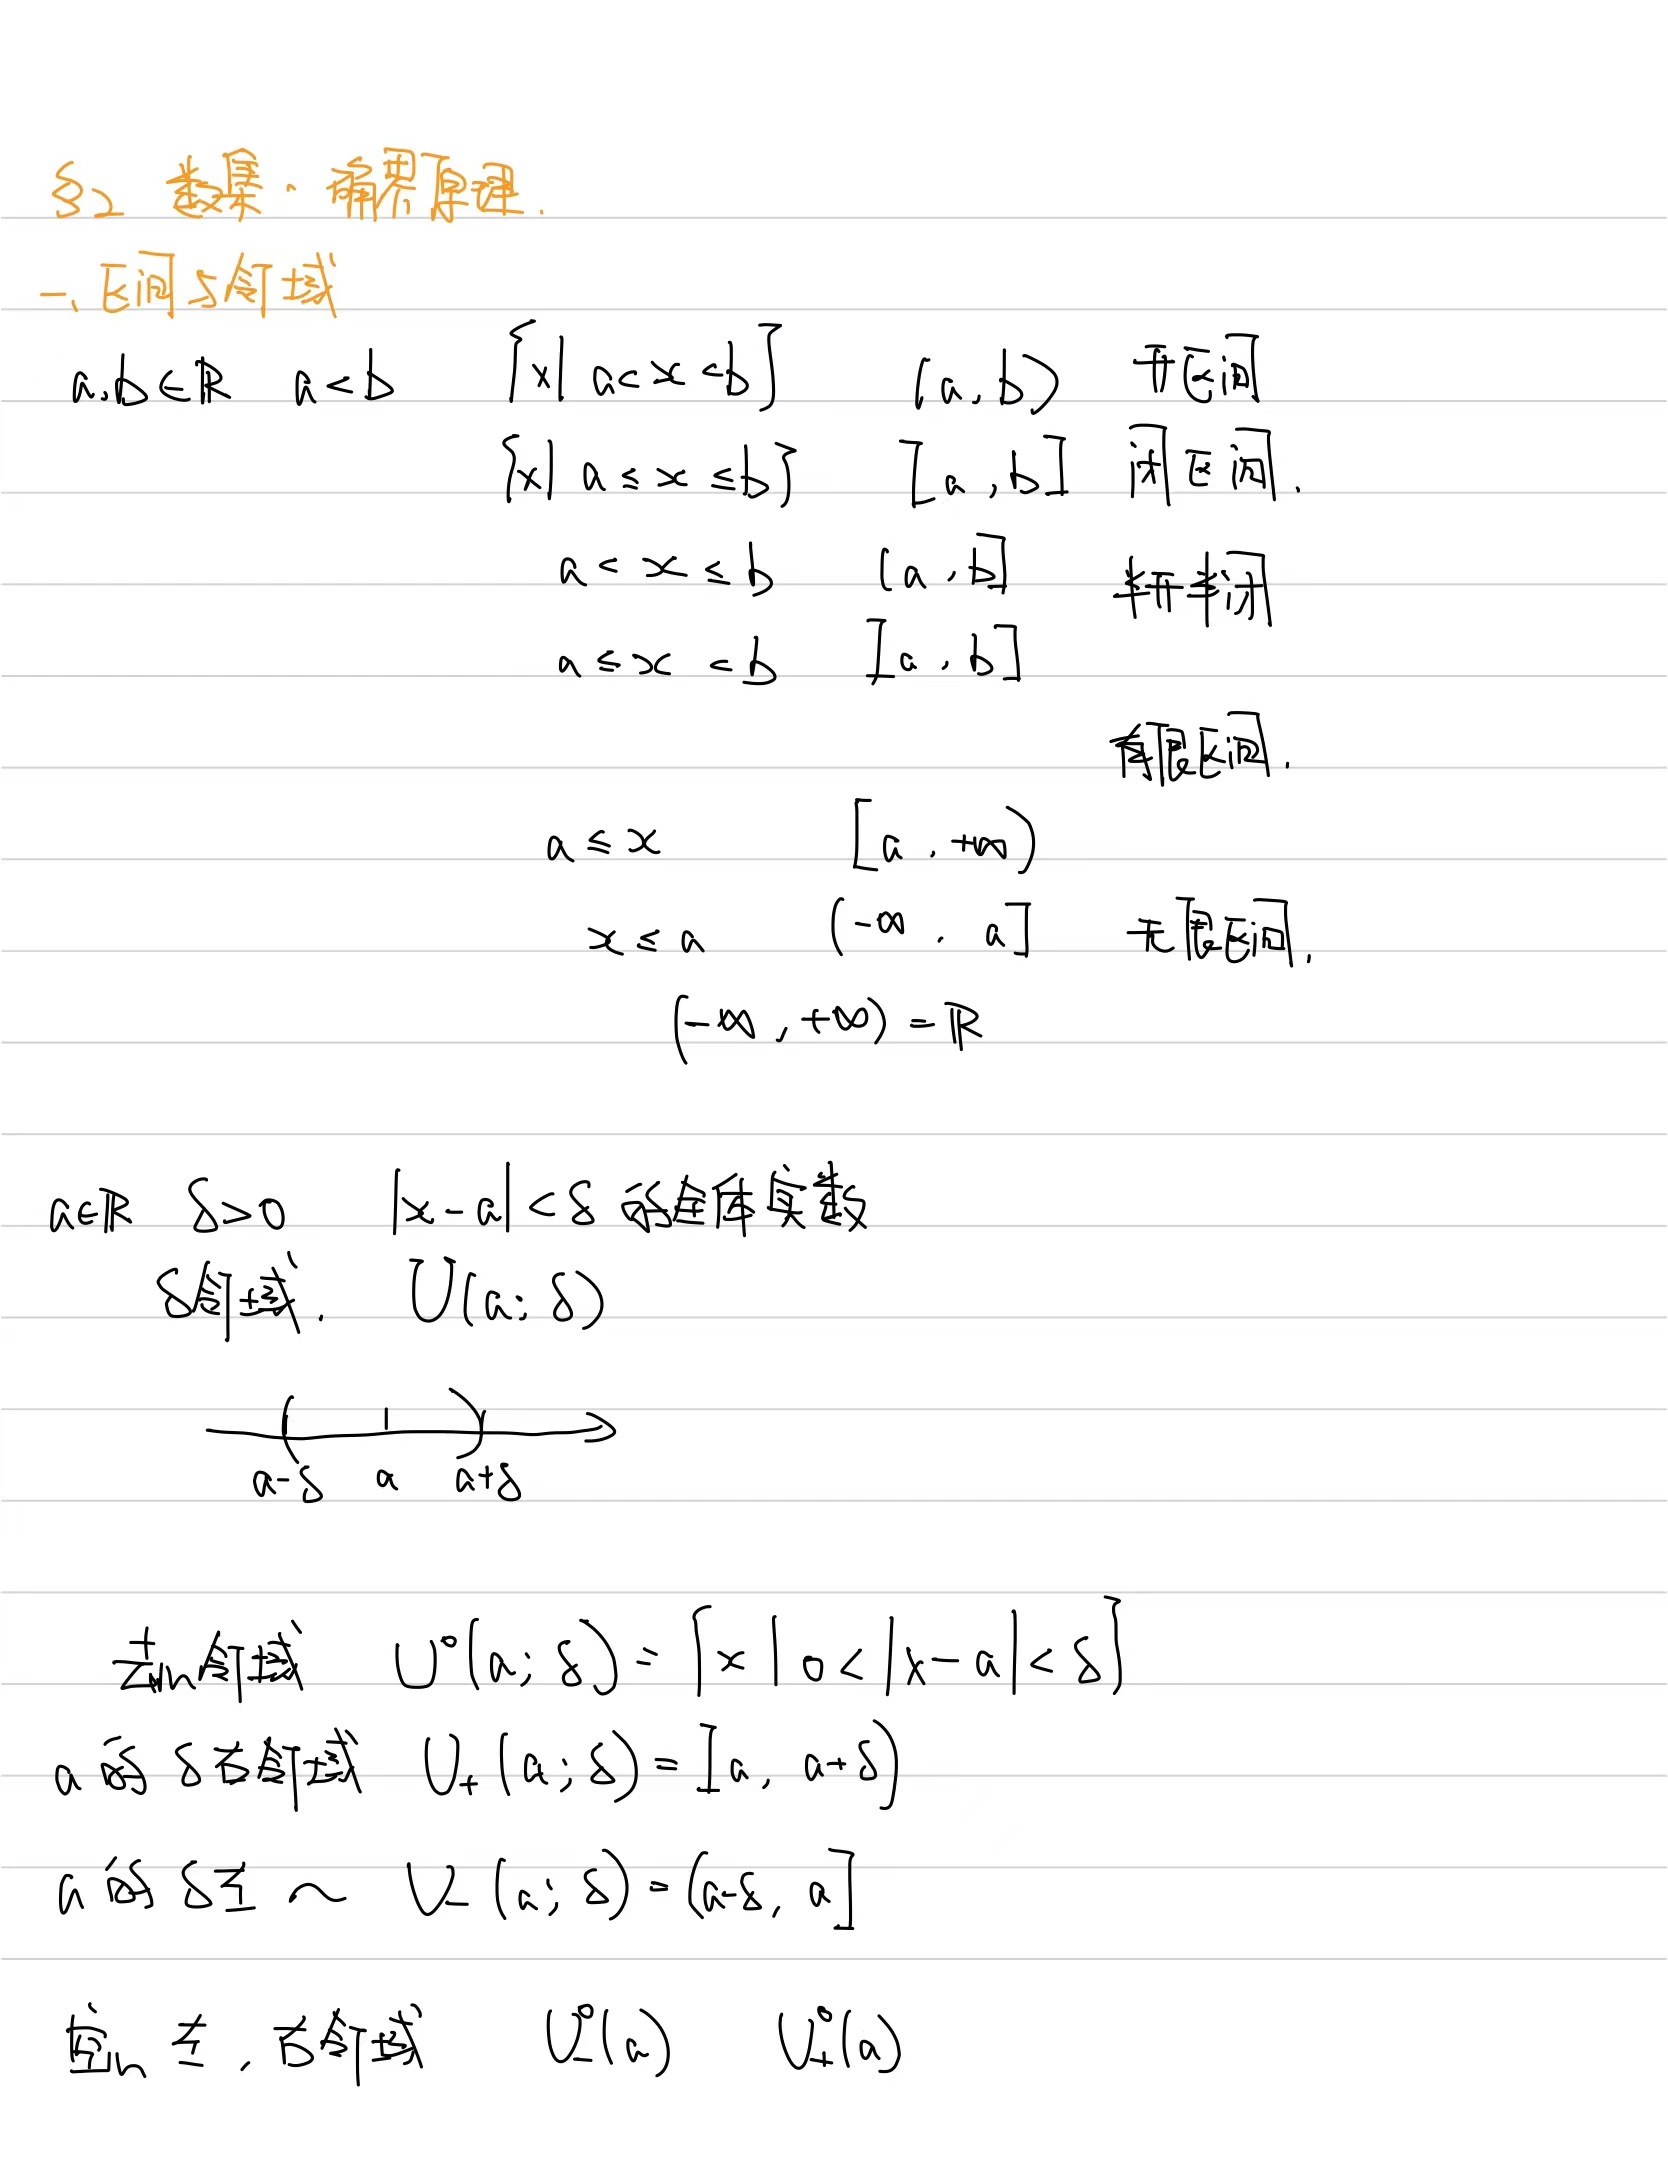 §2 数集·确界原理.
一、区间与邻域
a,b∈ℝ a<b {x| a<x<b} (a,b) 开区间
{x| a≤x≤b} [a,b] 闭区间.
a<x≤b (a,b] 半开半闭
a≤x<b [a,b]
有限区间.
a≤x [a,+∞)
x≤a (-∞,a] 无限区间.
(-∞,+∞)=ℝ
a∈ℝ δ>0 |x-a|<δ 的全体实数
δ邻域. U(a;δ)
a-δ a a+δ
去心邻域 U°(a;δ)={x|0<|x-a|<δ}
a的δ右邻域 U₊(a;δ)=[a,a+δ)
a的δ左~ U₋(a;δ)=(a-δ,a]
空心左,右邻域 U°₋(a) U°₊(a)